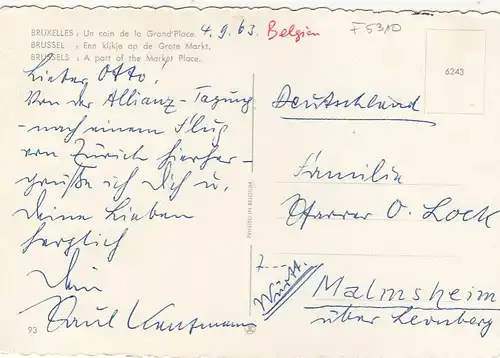 BRUXELLES : Un coin de la Grand'Place.
BRUSSEL : Een kijkje op de Grote Markt.
BRUSSELS : A part of the Market Place.
4.9.63 Belgien
F 5310
6243
Lieber Otto,
Von der Allianz-Tagung
- nach einem Flug
von Zürich hierher -
grüße ich Dich u.
Deine Lieben
herzlich
Dein
Paul
93
PRINTED IN BELGIUM
Deutschland
Familie
Pfarrer O. Lock
7
Württ.
Malmsheim
über Leonberg